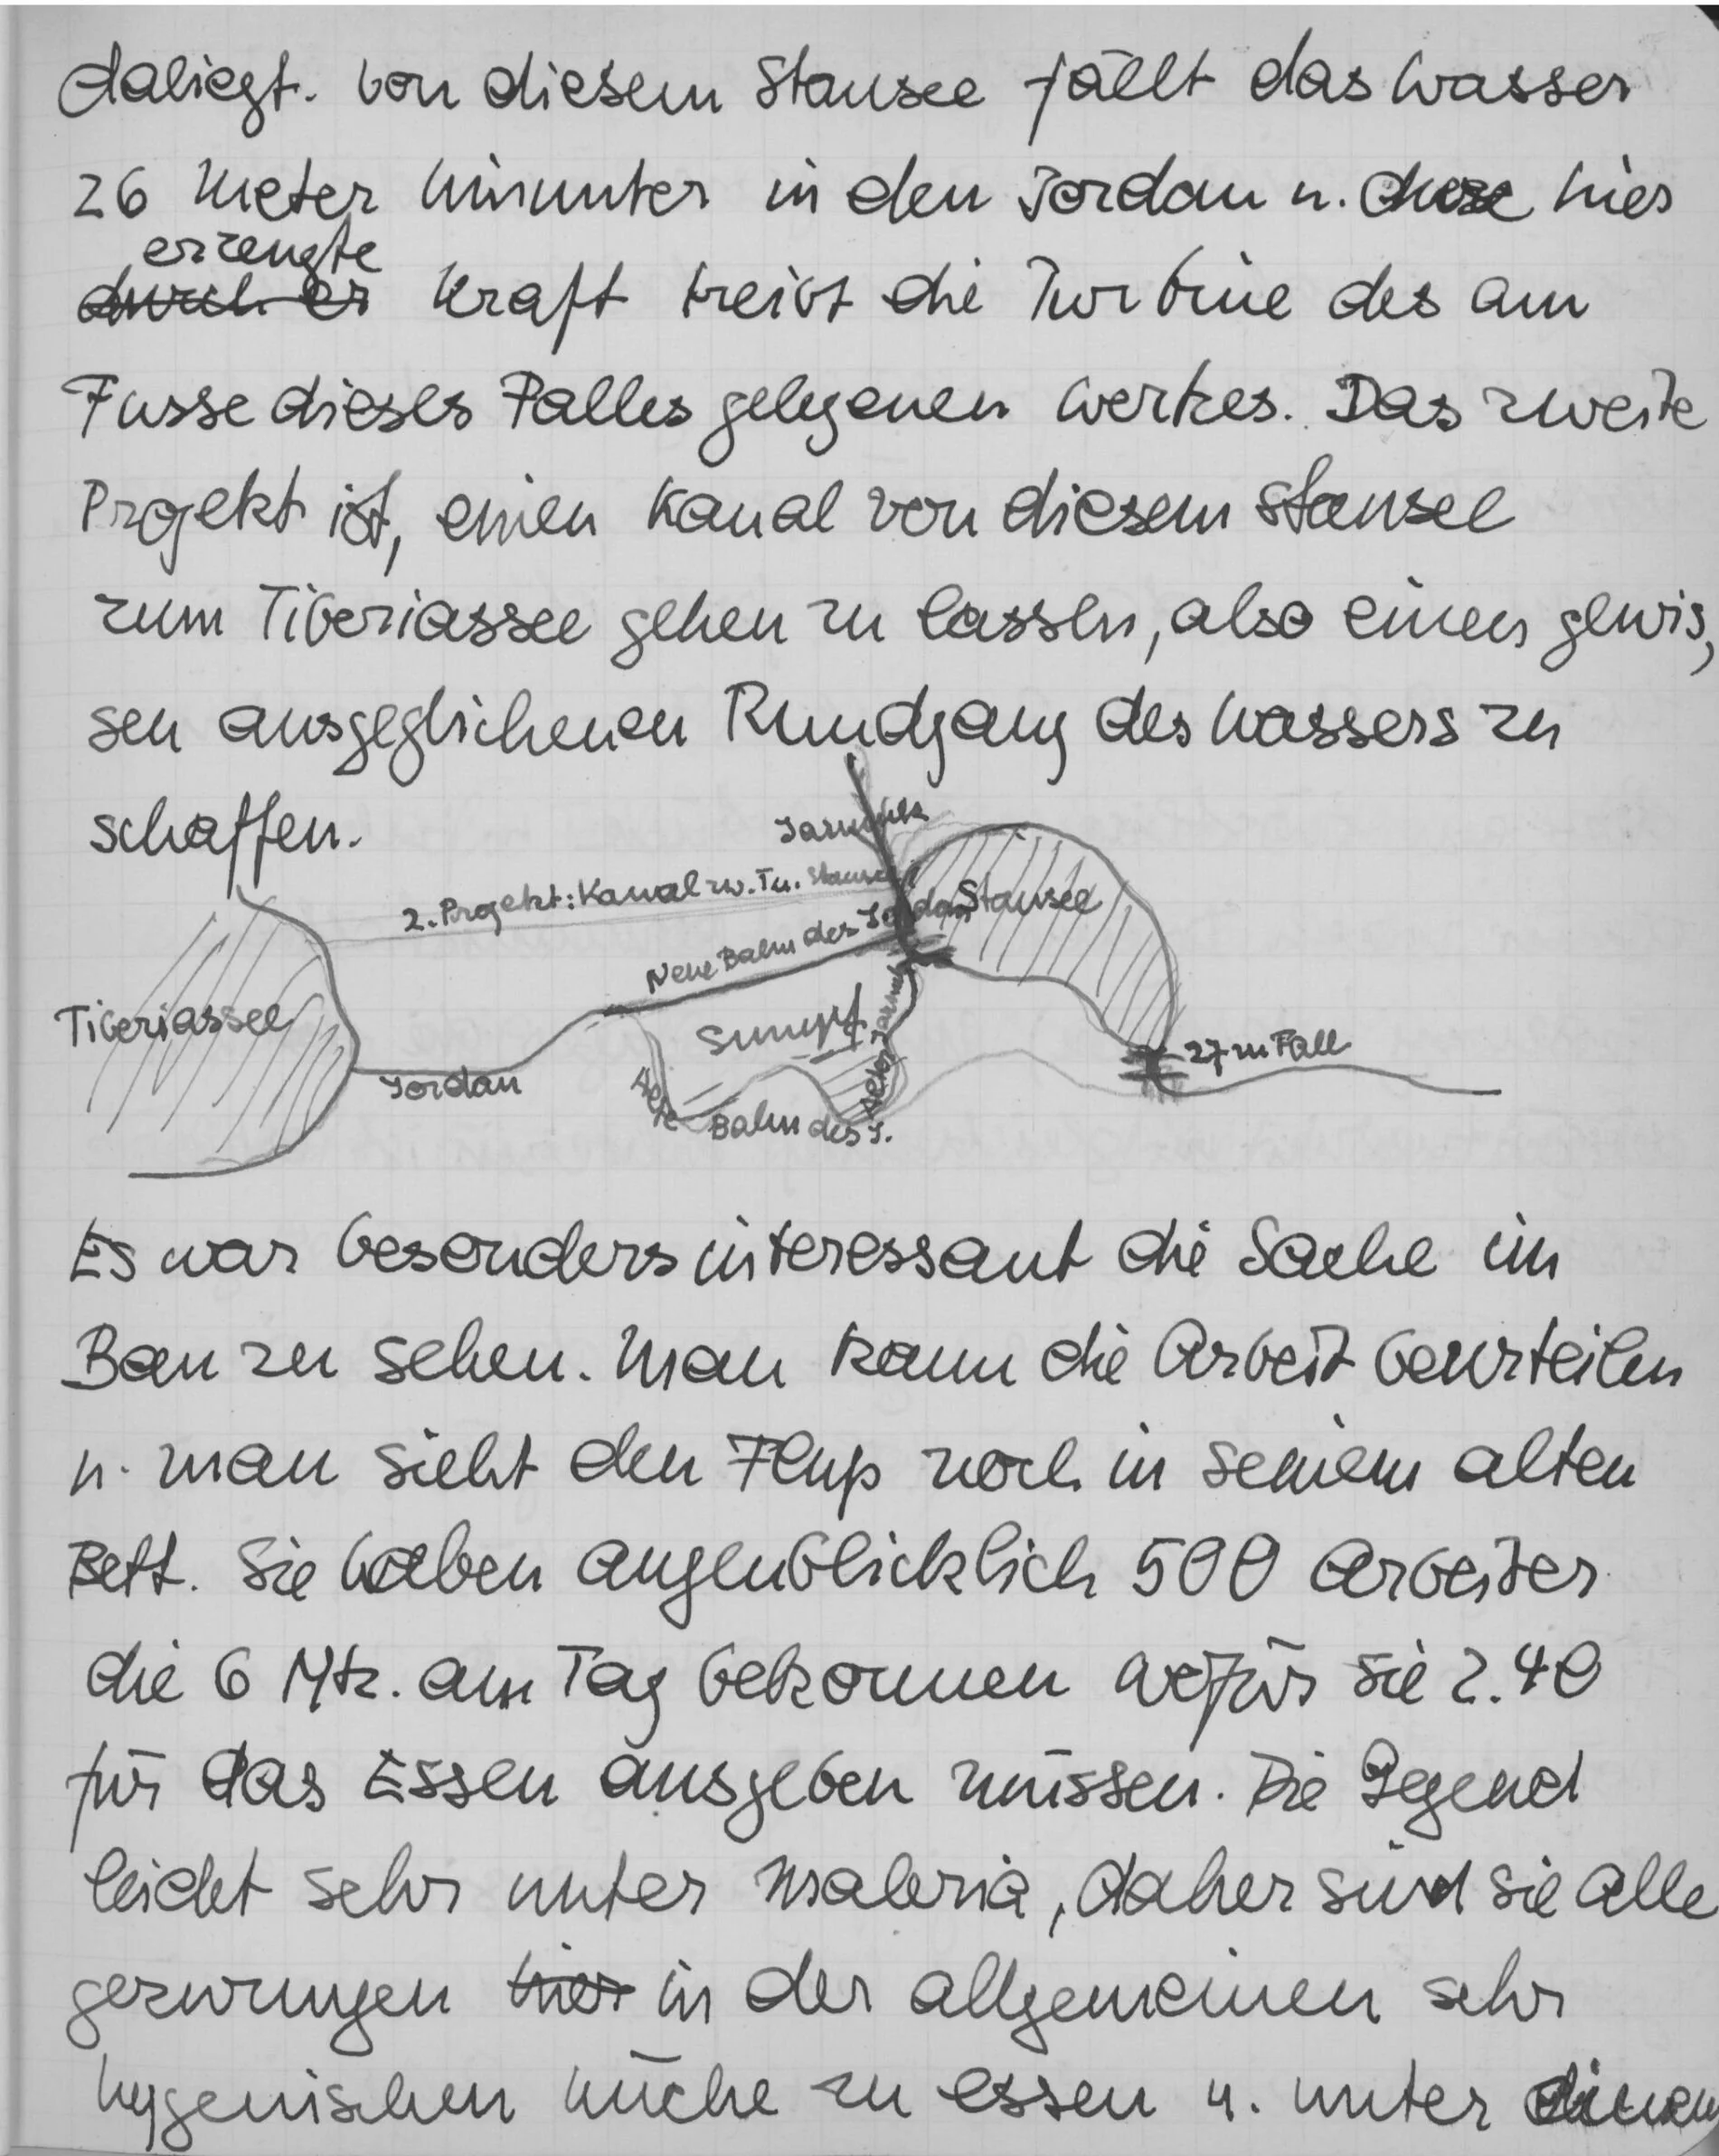 daliegt. Von diesem Stausee fällt das Wasser
26 Meter hinunter in den Jordan u. diese hier
erzeugte
durch er Kraft treibt die Turbine des am
Fusse dieses Falles gelegenen Werkes. Das zweite
Projekt ist, einen Kanal von diesem Stausee
zum Tiberiassee gehen zu lassen, also einen gewis,
sen ausgeglichenen Rundgang des Wassers zu
schaffen.
Jarmuk
2. Projekt: Kanal zw. Tu. Stausee
Neue Bahn des Jordan
Stausee
Tiberiassee
Sumpf
Jordan
Alte Bahn des J.
Alter Jarmuk
27 m Fall
Es war besonders interessant die Sache im
Bau zu sehen. Man kann die Arbeit beurteilen
u. man sieht den Fluß noch in seinem alten
Bett. Sie haben augenblicklich 500 Arbeiter
die 6 Mk. am Tag bekommen wofür sie 2.40
für das Essen ausgeben müssen. Die Gegend
leidet sehr unter Malaria, daher sind sie alle
gezwungen hier in der allgemeinen sehr
hygenischen Küche zu essen u. unter einem